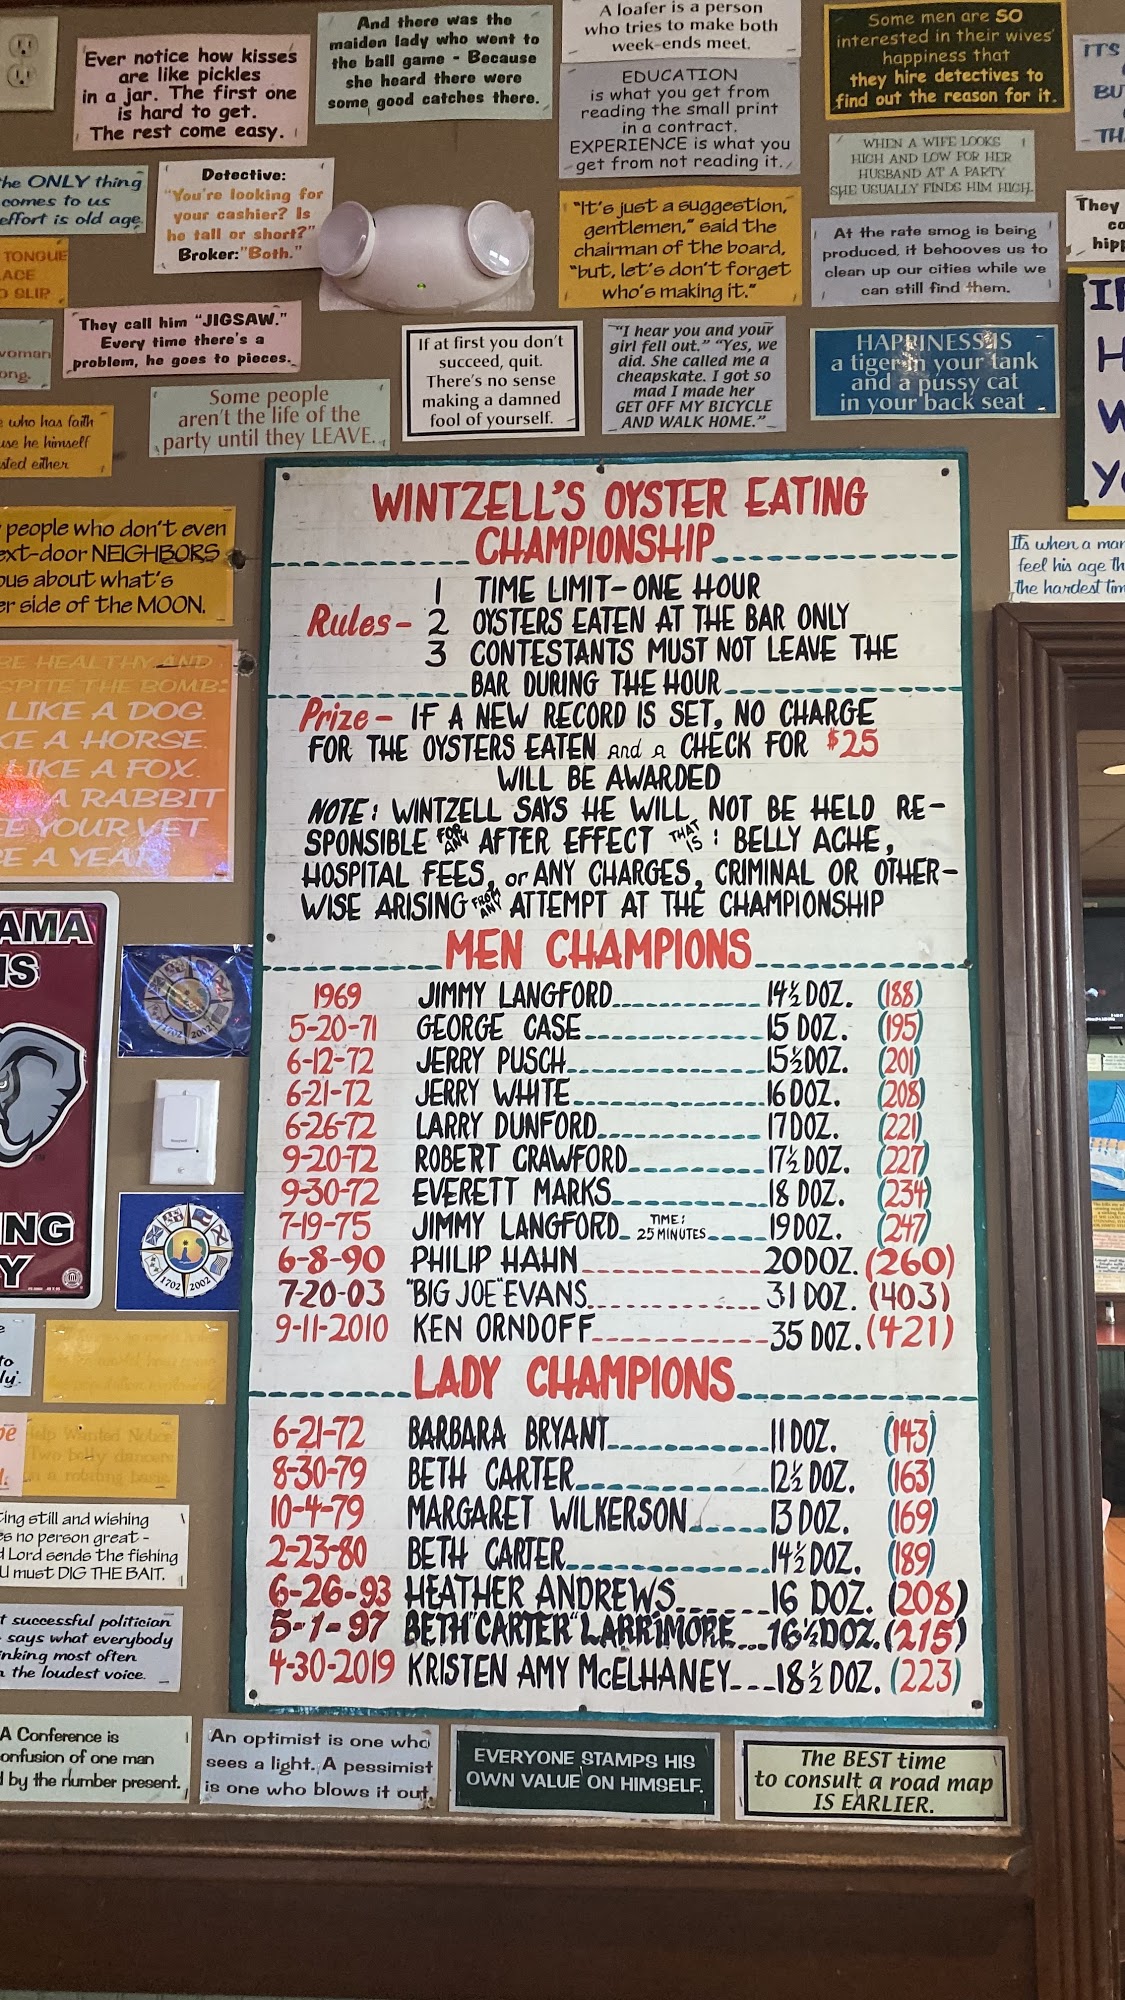 Ever notice how kisses
are like pickles
in a jar. The first one
is hard to get.
The rest come easy.
And there was the
maiden lady who went to
the ball game - Because
she heard there were
some good catches there.
A loafer is a person
who tries to make both
week-ends meet.
EDUCATION
is what you get from
reading the small print
in a contract.
EXPERIENCE is what you
get from not reading it.
Some men are SO
interested in their wives'
happiness that
they hire detectives to
find out the reason for it.
IT'S
BU
TH
the ONLY thing
comes to us
effort is old age.
Detective:
"You're looking for
your cashier? Is
he tall or short?"
Broker: "Both."
"It's just a suggestion,
gentlemen," said the
chairman of the board,
"but, let's don't forget
who's making it."
WHEN A WIFE LOOKS
HIGH AND LOW FOR HER
HUSBAND AT A PARTY
SHE USUALLY FINDS HIM HIGH.
At the rate smog is being
produced, it behooves us to
clean up our cities while we
can still find them.
They
co
hipp
TONGUE
ACE
O SLIP
They call him "JIGSAW."
Every time there's a
problem, he goes to pieces.
If at first you don't
succeed, quit.
There's no sense
making a damned
fool of yourself.
"I hear you and your
girl fell out." "Yes, we
did. She called me a
cheapskate. I got so
mad I made her
GET OFF MY BICYCLE
AND WALK HOME."
HAPPINESS IS
a tiger in your tank
and a pussy cat
in your back seat
IF
H
W
Y
woman
ong.
Some people
aren't the life of the
party until they LEAVE.
who has faith
use he himself
sted either
people who don't even
ext-door NEIGHBORS
ous about what's
er side of the MOON.
It's when a man
feel his age th
the hardest tim
BE HEALTHY AND
SPITE THE BOMB:
LIKE A DOG.
KE A HORSE.
LIKE A FOX.
A RABBIT
EE YOUR VET
CE A YEAR
WINTZELL'S OYSTER EATING
CHAMPIONSHIP
Rules- 1 TIME LIMIT-ONE HOUR
2 OYSTERS EATEN AT THE BAR ONLY
3 CONTESTANTS MUST NOT LEAVE THE
BAR DURING THE HOUR
Prize- IF A NEW RECORD IS SET, NO CHARGE
FOR THE OYSTERS EATEN and a CHECK FOR $25
WILL BE AWARDED
NOTE: WINTZELL SAYS HE WILL NOT BE HELD RE-
SPONSIBLE FOR ANY AFTER EFFECT THAT IS: BELLY ACHE,
HOSPITAL FEES, or ANY CHARGES, CRIMINAL OR OTHER-
WISE ARISING FROM ANY ATTEMPT AT THE CHAMPIONSHIP
MEN CHAMPIONS
1969 JIMMY LANGFORD 14½ DOZ. (188)
5-20-71 GEORGE CASE 15 DOZ. (195)
6-12-72 JERRY PUSCH 15½ DOZ. (201)
6-21-72 JERRY WHITE 16 DOZ. (208)
6-26-72 LARRY DUNFORD 17 DOZ. (221)
9-20-72 ROBERT CRAWFORD 17½ DOZ. (227)
9-30-72 EVERETT MARKS 18 DOZ. (234)
7-19-75 JIMMY LANGFORD TIME: 25 MINUTES 19 DOZ. (247)
6-8-90 PHILIP HAHN 20 DOZ. (260)
7-20-03 "BIG JOE" EVANS 31 DOZ. (403)
9-11-2010 KEN ORNDOFF 35 DOZ. (421)
LADY CHAMPIONS
6-21-72 BARBARA BRYANT 11 DOZ. (143)
8-30-79 BETH CARTER 12½ DOZ. (163)
10-4-79 MARGARET WILKERSON 13 DOZ. (169)
2-23-80 BETH CARTER 14½ DOZ. (189)
6-26-93 HEATHER ANDREWS 16 DOZ. (208)
5-1-97 BETH "CARTER" LARRIMORE 16½ DOZ. (215)
4-30-2019 KRISTEN AMY McELHANEY 18½ DOZ. (223)
AMA
IS
ING
Y
1702 2002
1702 2002
to
ly.
Help Wanted Notice
Two belly dancers
on a rotating basis.
ting still and wishing
es no person great -
d Lord sends the fishing
u must DIG THE BAIT.
t successful politician
says what everybody
inking most often
n the loudest voice.
A Conference is
onfusion of one man
d by the number present.
An optimist is one who
sees a light. A pessimist
is one who blows it out.
EVERYONE STAMPS HIS
OWN VALUE ON HIMSELF.
The BEST time
to consult a road map
IS EARLIER.